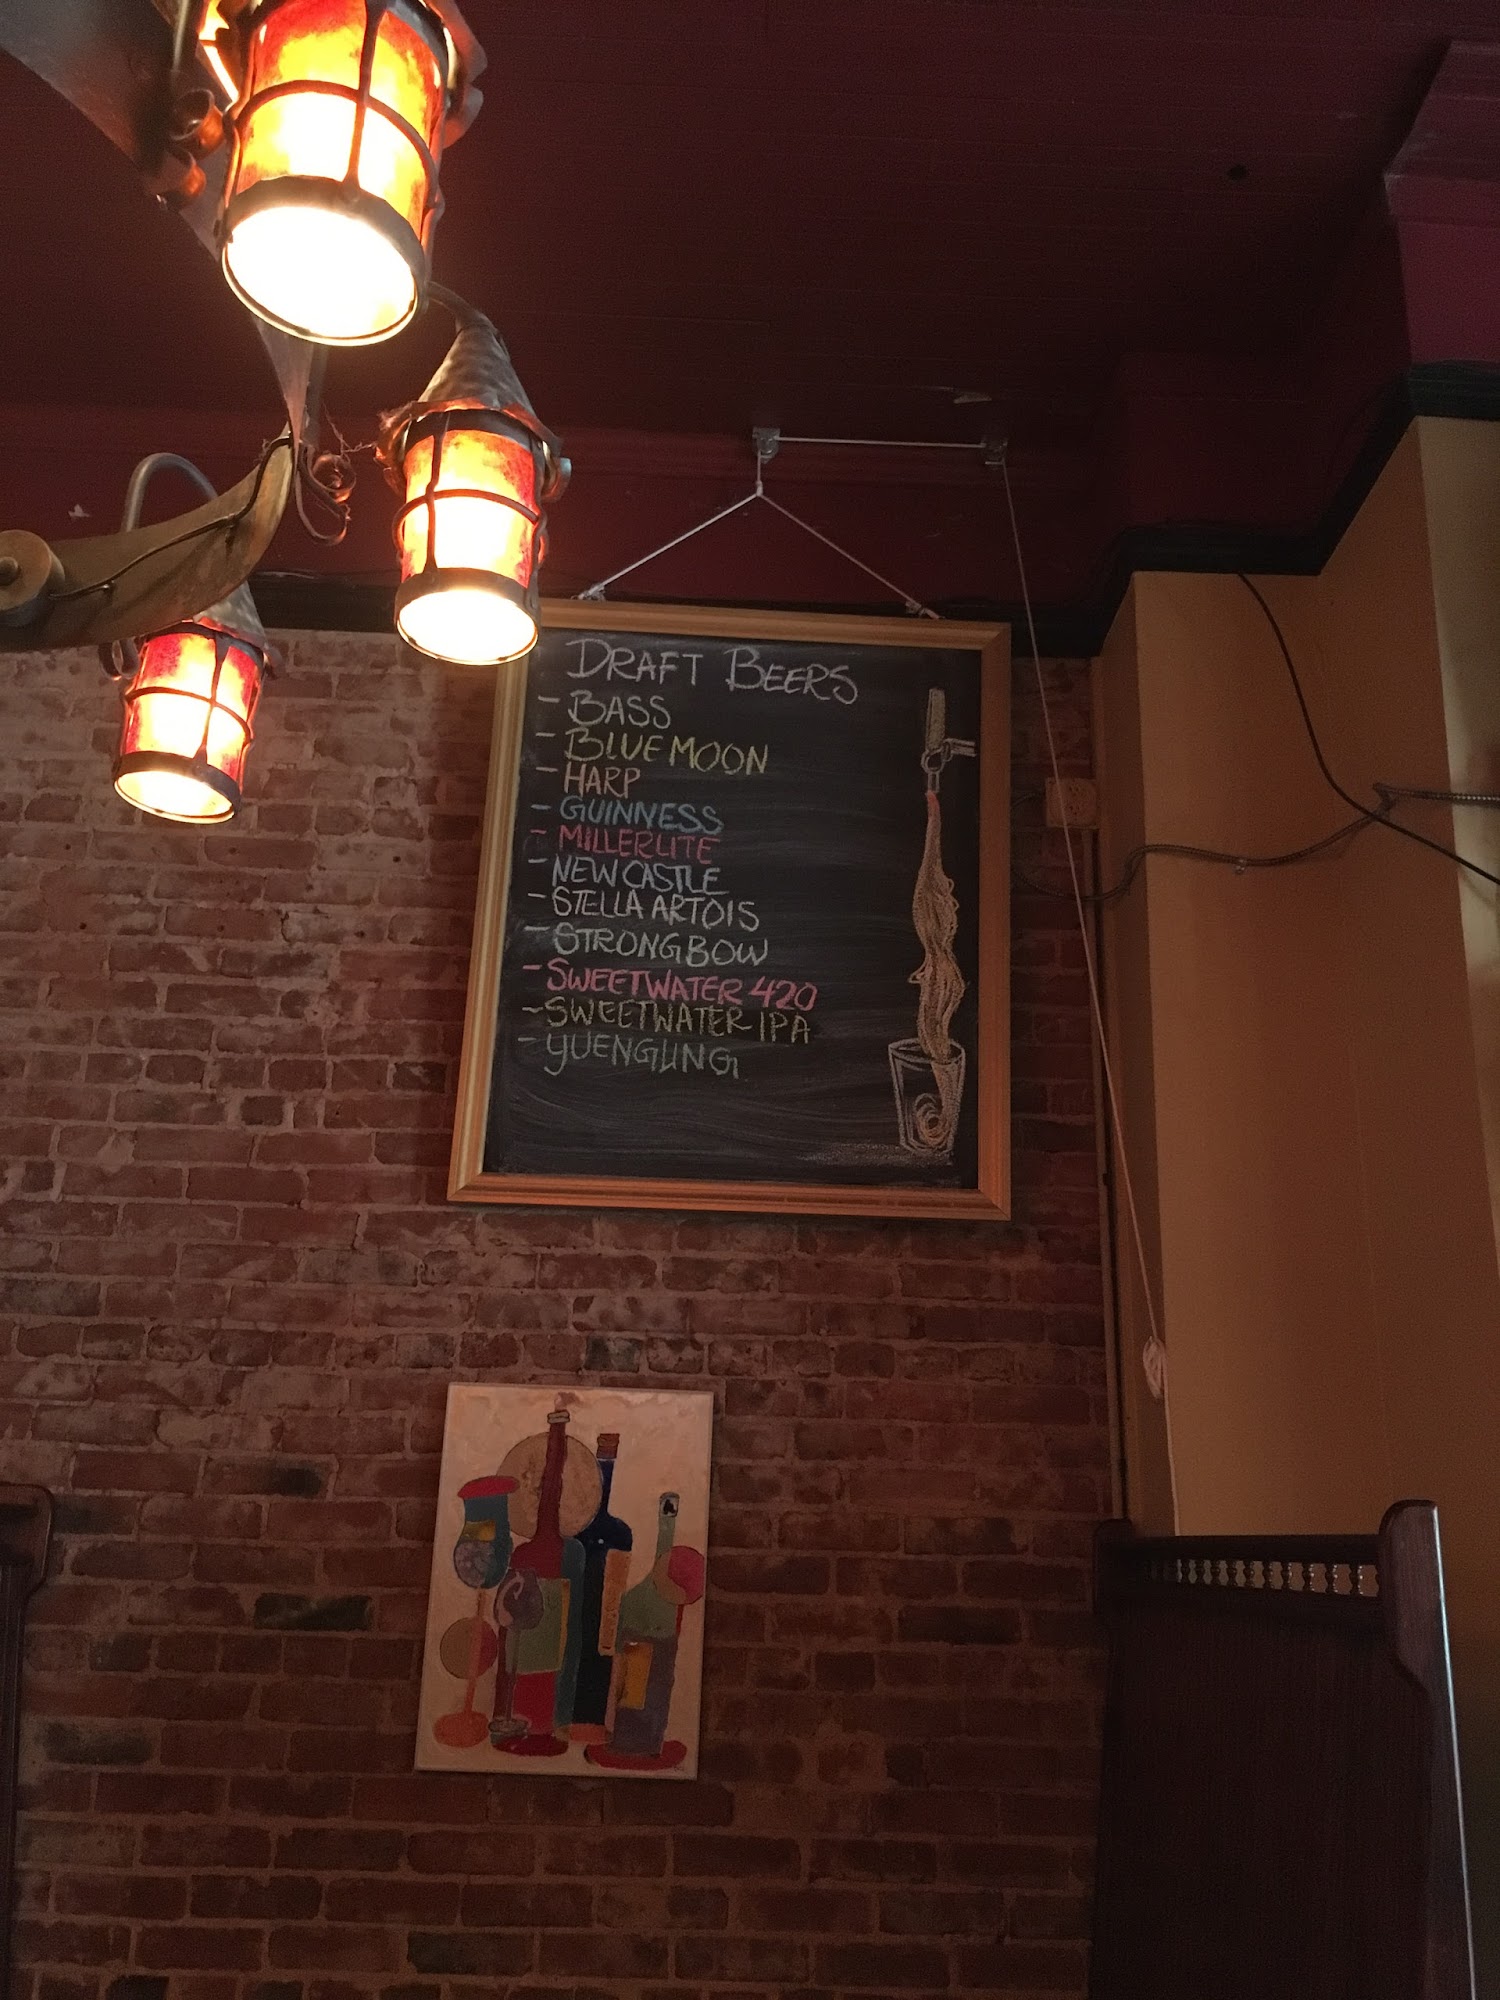 DRAFT BEERS
- BASS
- BLUE MOON
- HARP
- GUINNESS
- MILLER LITE
- NEW CASTLE
- STELLA ARTOIS
- STRONGBOW
- SWEETWATER 420
- SWEETWATER IPA
- YUENGLING